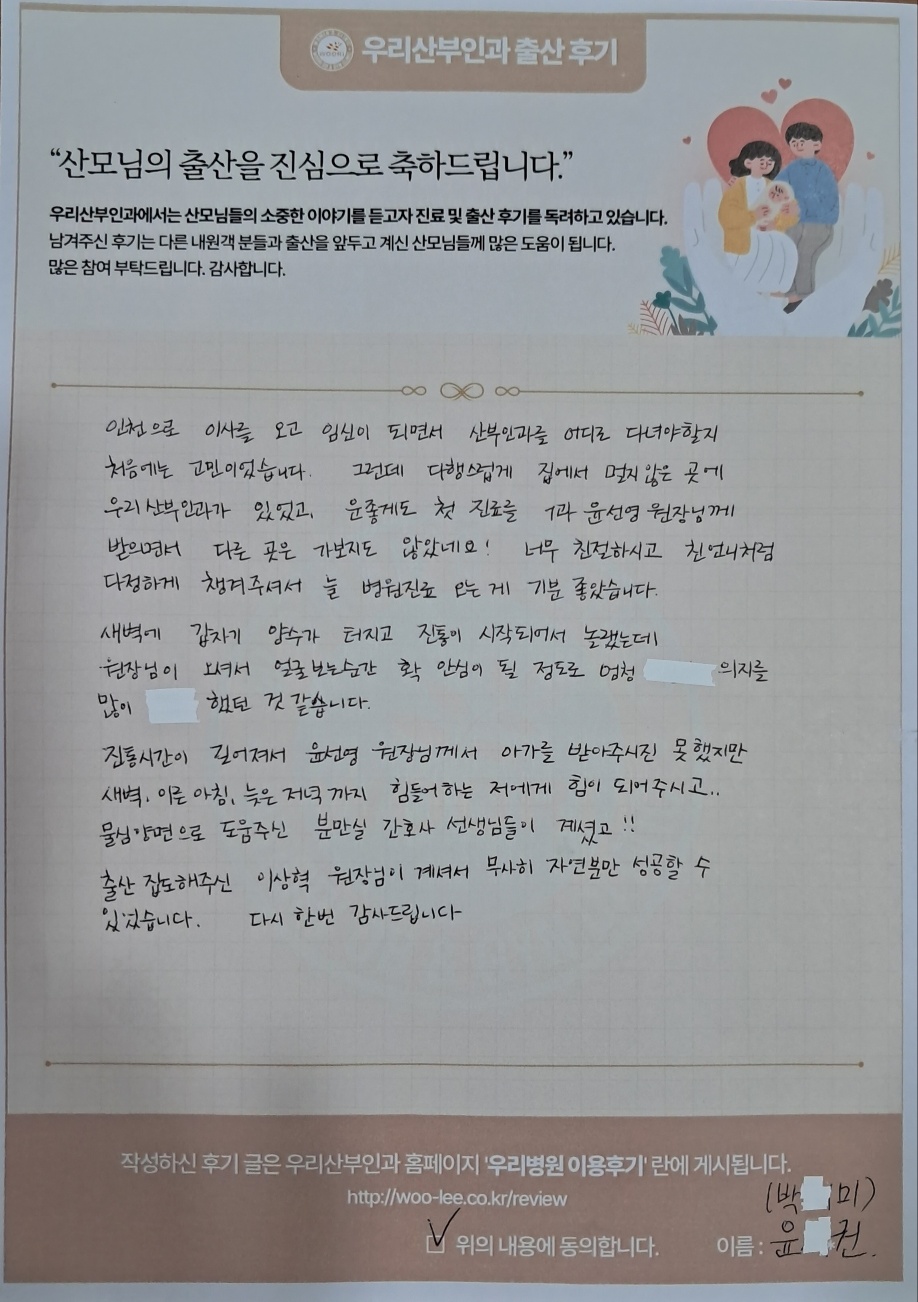 우리산부인과 출산 후기
“산모님의 출산을 진심으로 축하드립니다.”
우리산부인과에서는 산모님들의 소중한 이야기를 듣고자 진료 및 출산 후기를 독려하고 있습니다.
남겨주신 후기는 다른 내원객 분들과 출산을 앞두고 계신 산모님들께 많은 도움이 됩니다.
많은 참여 부탁드립니다. 감사합니다.
인천으로 이사를 오고 임신이 되면서 산부인과를 어디로 다녀야할지
처음에는 고민이었습니다. 그런데 다행스럽게 집에서 멀지않은 곳에
우리산부인과가 있었고, 운좋게도 첫 진료를 1과 윤선영 원장님께
받으면서 다른 곳은 가보지도 않았네요! 너무 친절하시고 친언니처럼
다정하게 챙겨주셔서 늘 병원진료 오는게 기분 좋았습니다.
새벽에 갑자기 양수가 터지고 진통이 시작되어서 놀랬는데
원장님이 오셔서 얼굴보는순간 확 안심이 될 정도로 엄청 의지를
많이 했던 것 같습니다.
진통시간이 길어져서 윤선영 원장님께서 아가를 받아주시진 못했지만
새벽, 이른 아침, 늦은 저녁까지 힘들어하는 저에게 힘이 되어주시고..
물심양면으로 도움주신 분만실 간호사 선생님들이 계셨고!!
출산 집도해주신 이상혁 원장님이 계셔서 무사히 자연분만 성공할 수
있었습니다. 다시 한번 감사드립니다
작성하신 후기 글은 우리산부인과 홈페이지 '우리병원 이용후기' 란에 게시됩니다.
http://woo-lee.co.kr/review
(박 미)
위의 내용에 동의합니다. 이름 : 윤 권.